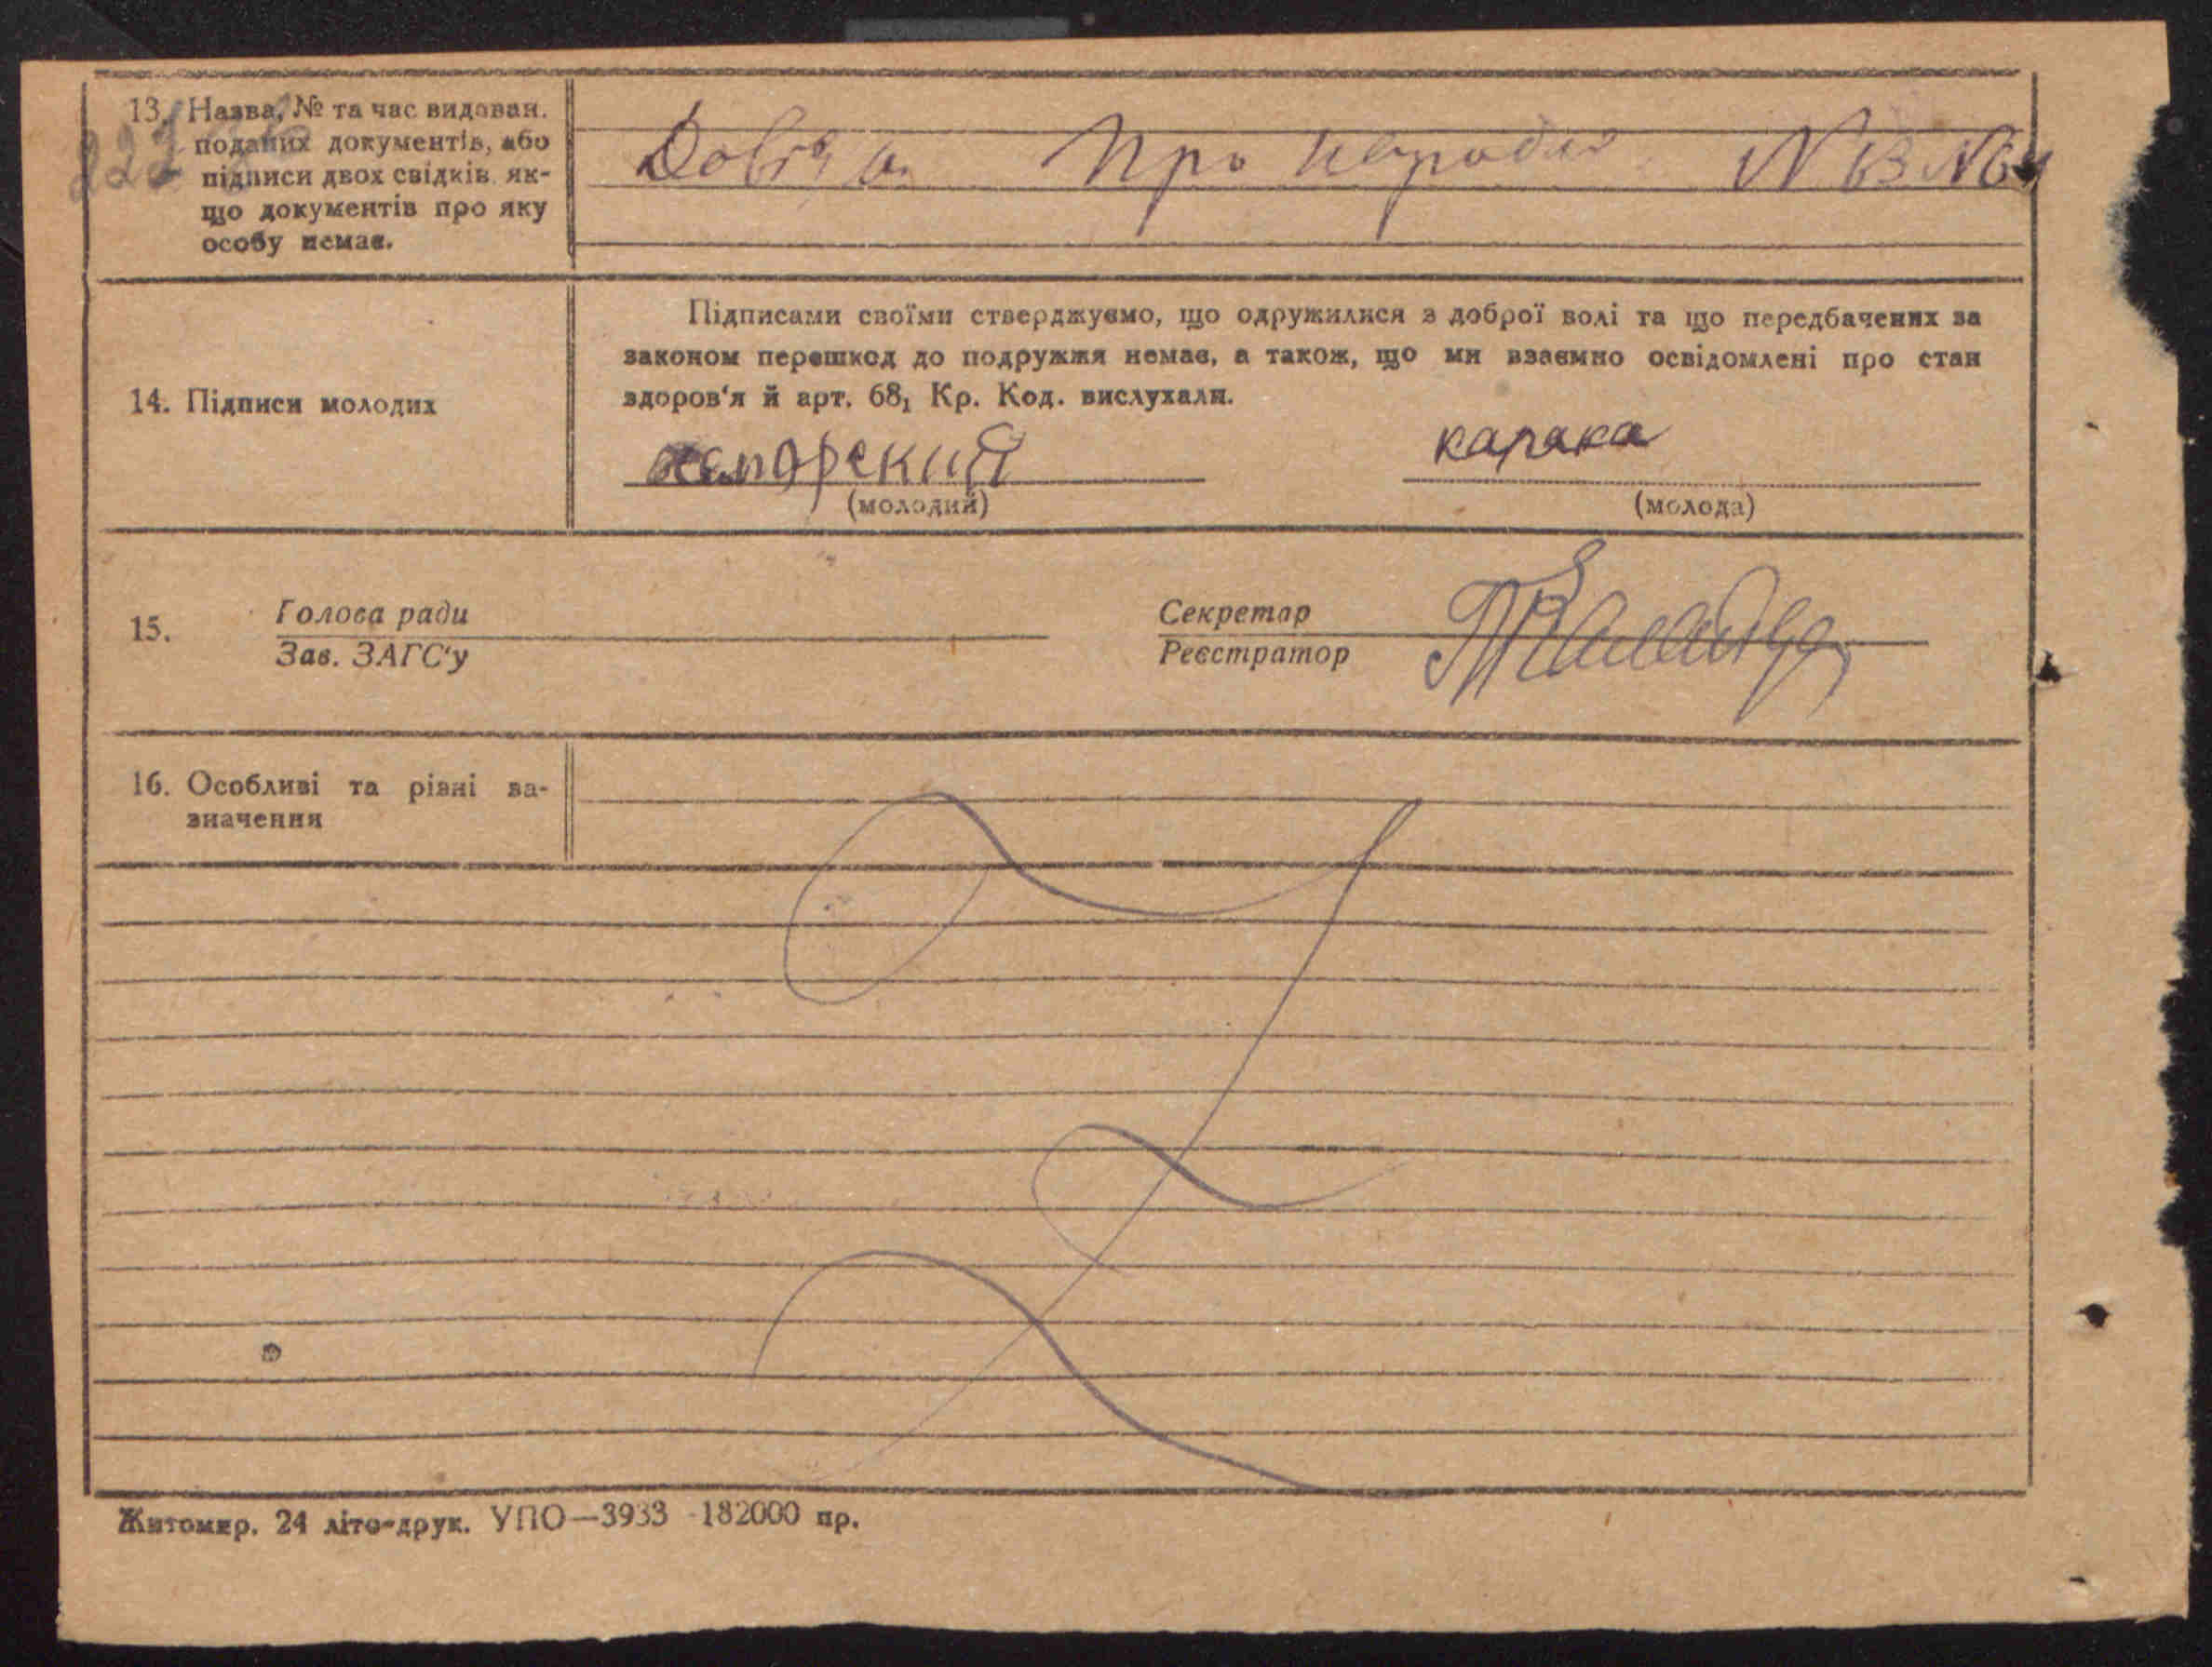 13. Назва, № та час видаван.
поданих документів, або
підписи двох свідків, як-
що документів про яку
особу немає.
Про
14. Підписи молодих
Підписами своїми стверджуємо, що одружилися з доброї волі та що передбачених за
законом перешкод до подружжя немає, а також, що ми взаємно освідомлені про стан
здоров'я й арт. 68₁ Кр. Код. вислухали.
карака
(молодий)
(молода)
15.
Голова ради
Зав. ЗАГС'у
Секретар
Реєстратор
16. Особливі та різні за-
значення
Житомир. 24 літо-друк. УПО—3933 -182000 пр.